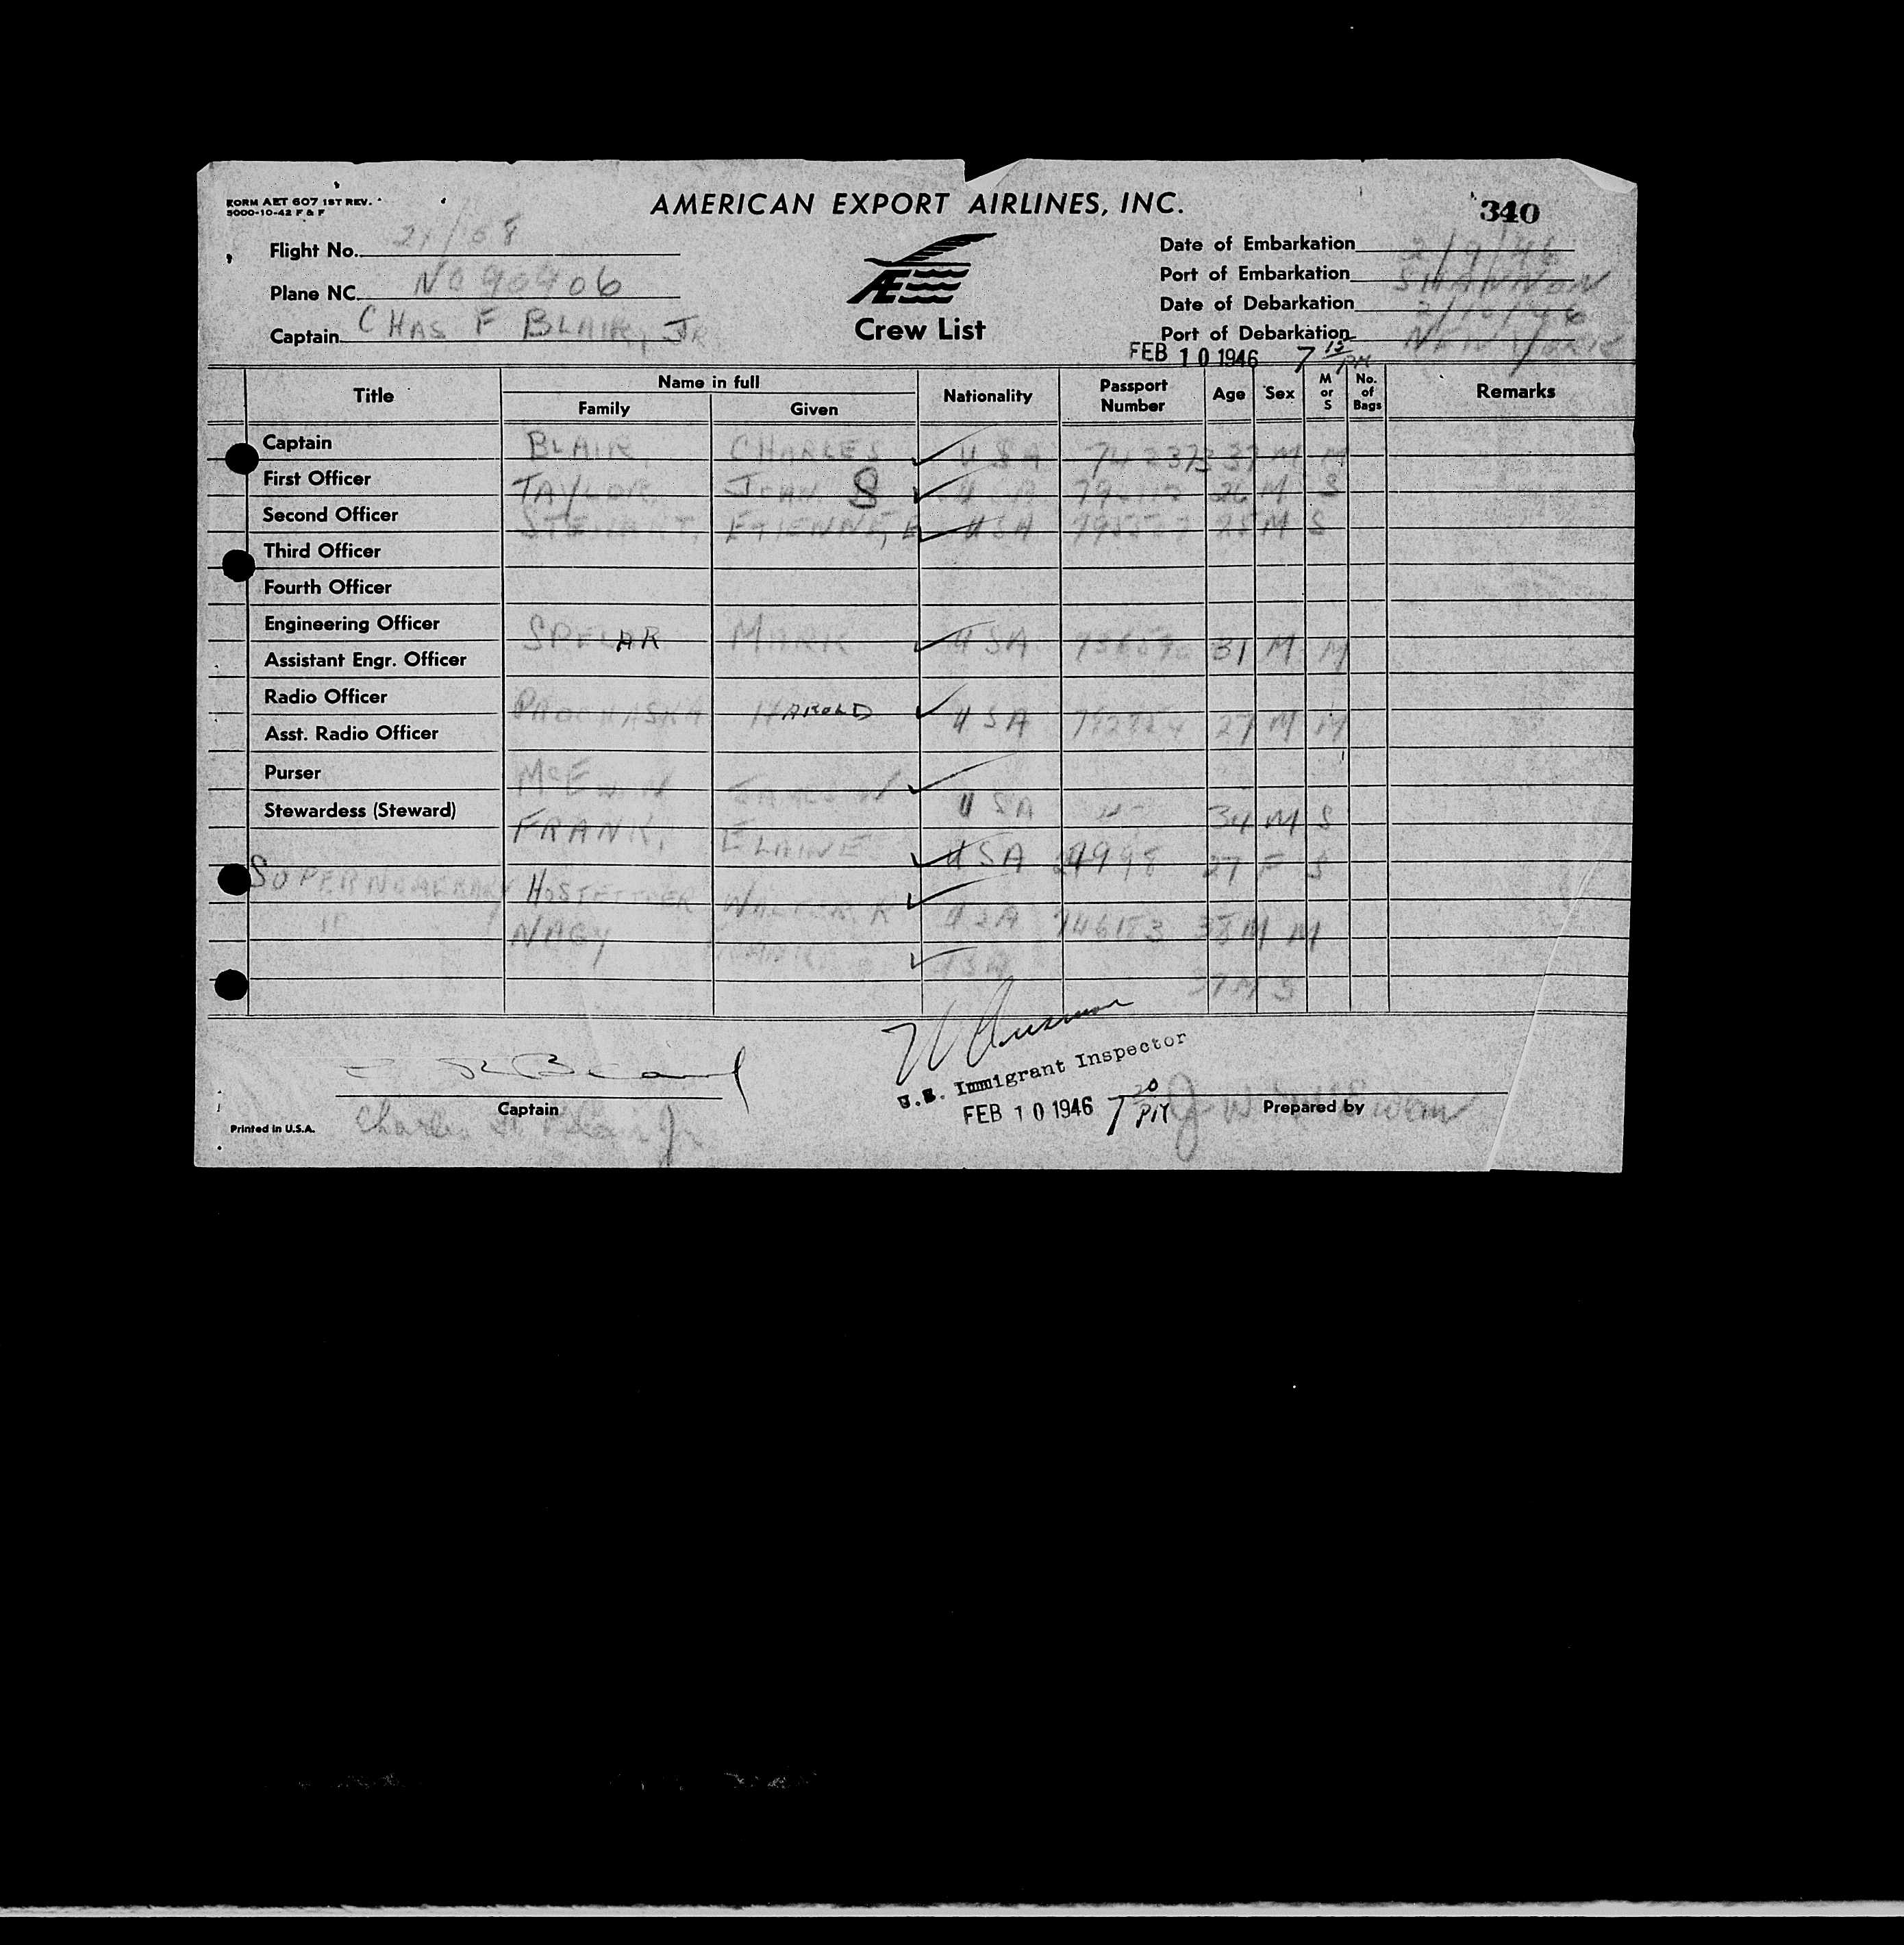 FORM AET 607 1ST REV.
5000-10-42 F & F
AMERICAN EXPORT AIRLINES, INC.
340
Flight No.
Plane NC. NC90906
Captain CHAS F BLAIR, JR
Æ
Crew List
Date of Embarkation 2/9/46
Port of Embarkation SHANNON
Date of Debarkation 2/10/46
Port of Debarkation NEW YORK
FEB 10 1946 7 15 PM
Title Name in full Nationality Passport Number Age Sex M or S No. of Bags Remarks
Family Given
Captain BLAIR, CHARLES USA 742373 37 M M
First Officer TAYLOR JOHN S USA 26 M S
Second Officer STEWART, ETIENNE, E USA M S
Third Officer
Fourth Officer
Engineering Officer SPELAR MARK USA 31 M M
Assistant Engr. Officer
Radio Officer PROCHASKA HAROLD USA 27 M M
Asst. Radio Officer
Purser McEWAN USA 34 M S
Stewardess (Steward) FRANK, ELAINE USA 27 F S
SUPERNUMERARY HOSTETTLER WALTER R USA 746183 38 M M
NAGY USA 37 M S
Captain
Charles F. Blair Jr
U.S. Immigrant Inspector
FEB 10 1946 7 20 PM
Prepared by
Printed in U.S.A.